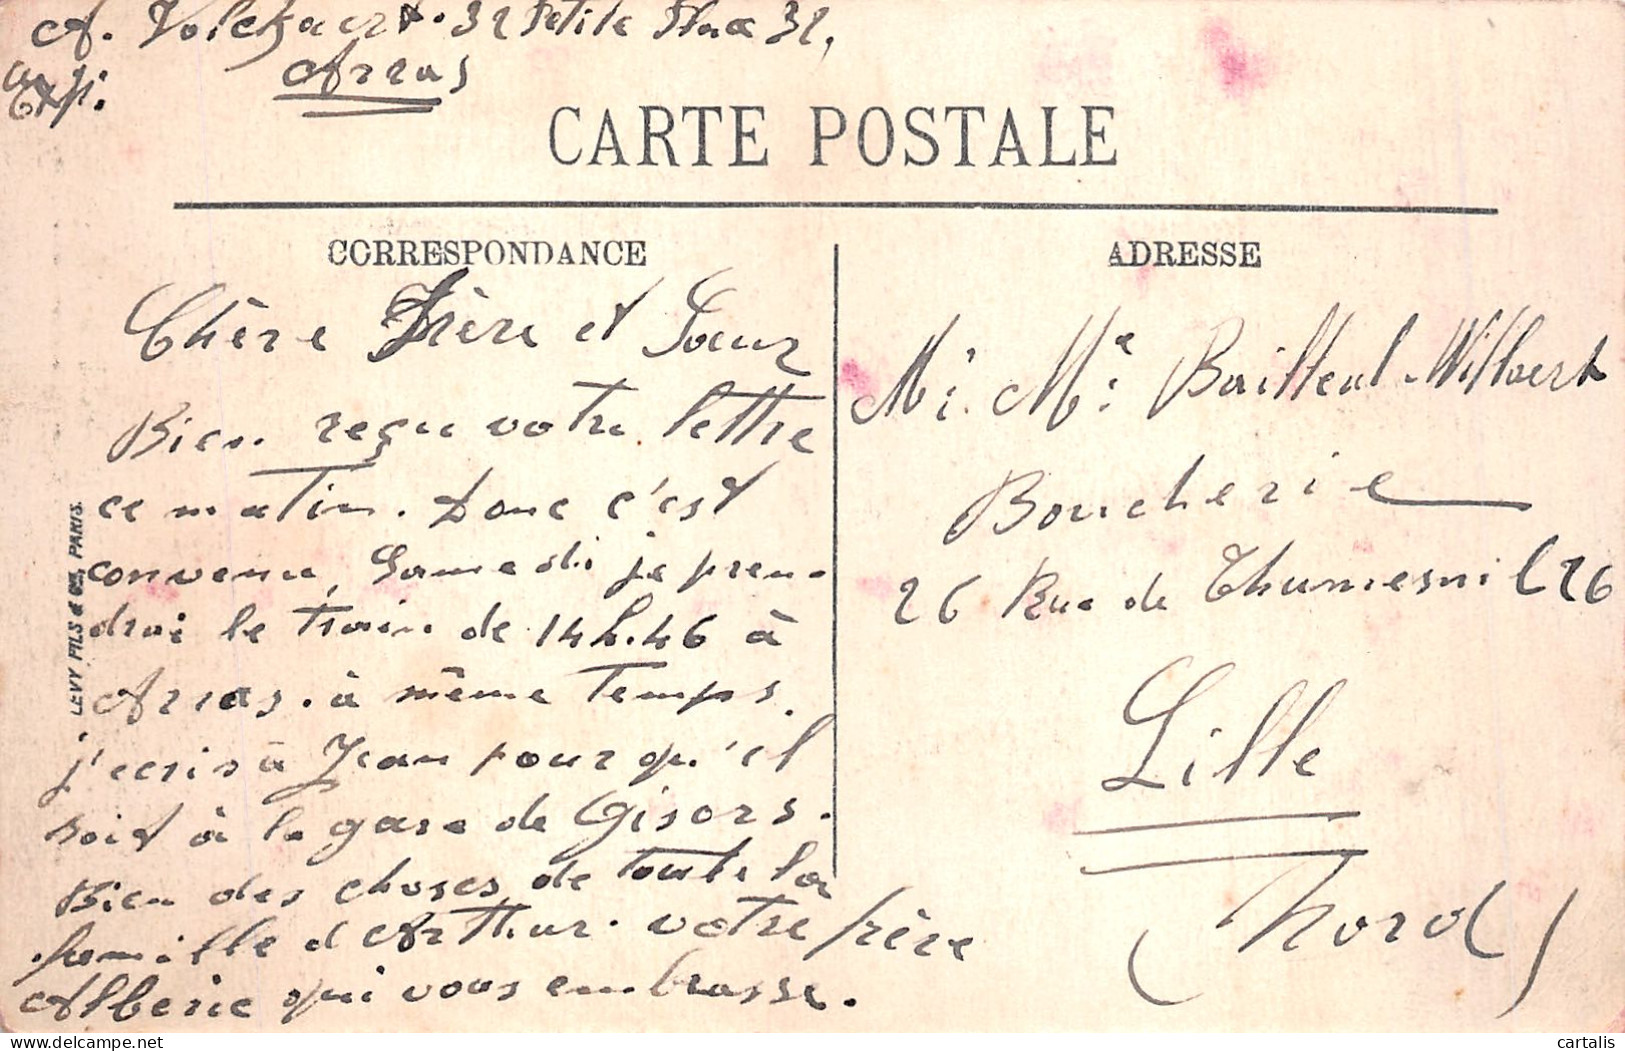 A. Volckaert. 32 Petite Place 32,
Exp. Arras
CARTE POSTALE
CORRESPONDANCE
Chère Frère et Sœur
Bien reçu votre lettre
ce matin. Donc c'est
convenu, Samedi je pren-
drai le train de 14h.46 à
Arras. à même temps.
j'ecris à Jean pour qu'il
soit à la gare de Gisors.
Bien des choses de toute la
famille d'Arthur. votre frère
Alberic qui vous embrasse.
LEVY FILS & Cie, PARIS.
ADRESSE
Mr. Me: Bailleul-Willaert
Boucherie
26 Rue de Thumesnil 26
Lille
(Nord)
cartalis
delcampe.net